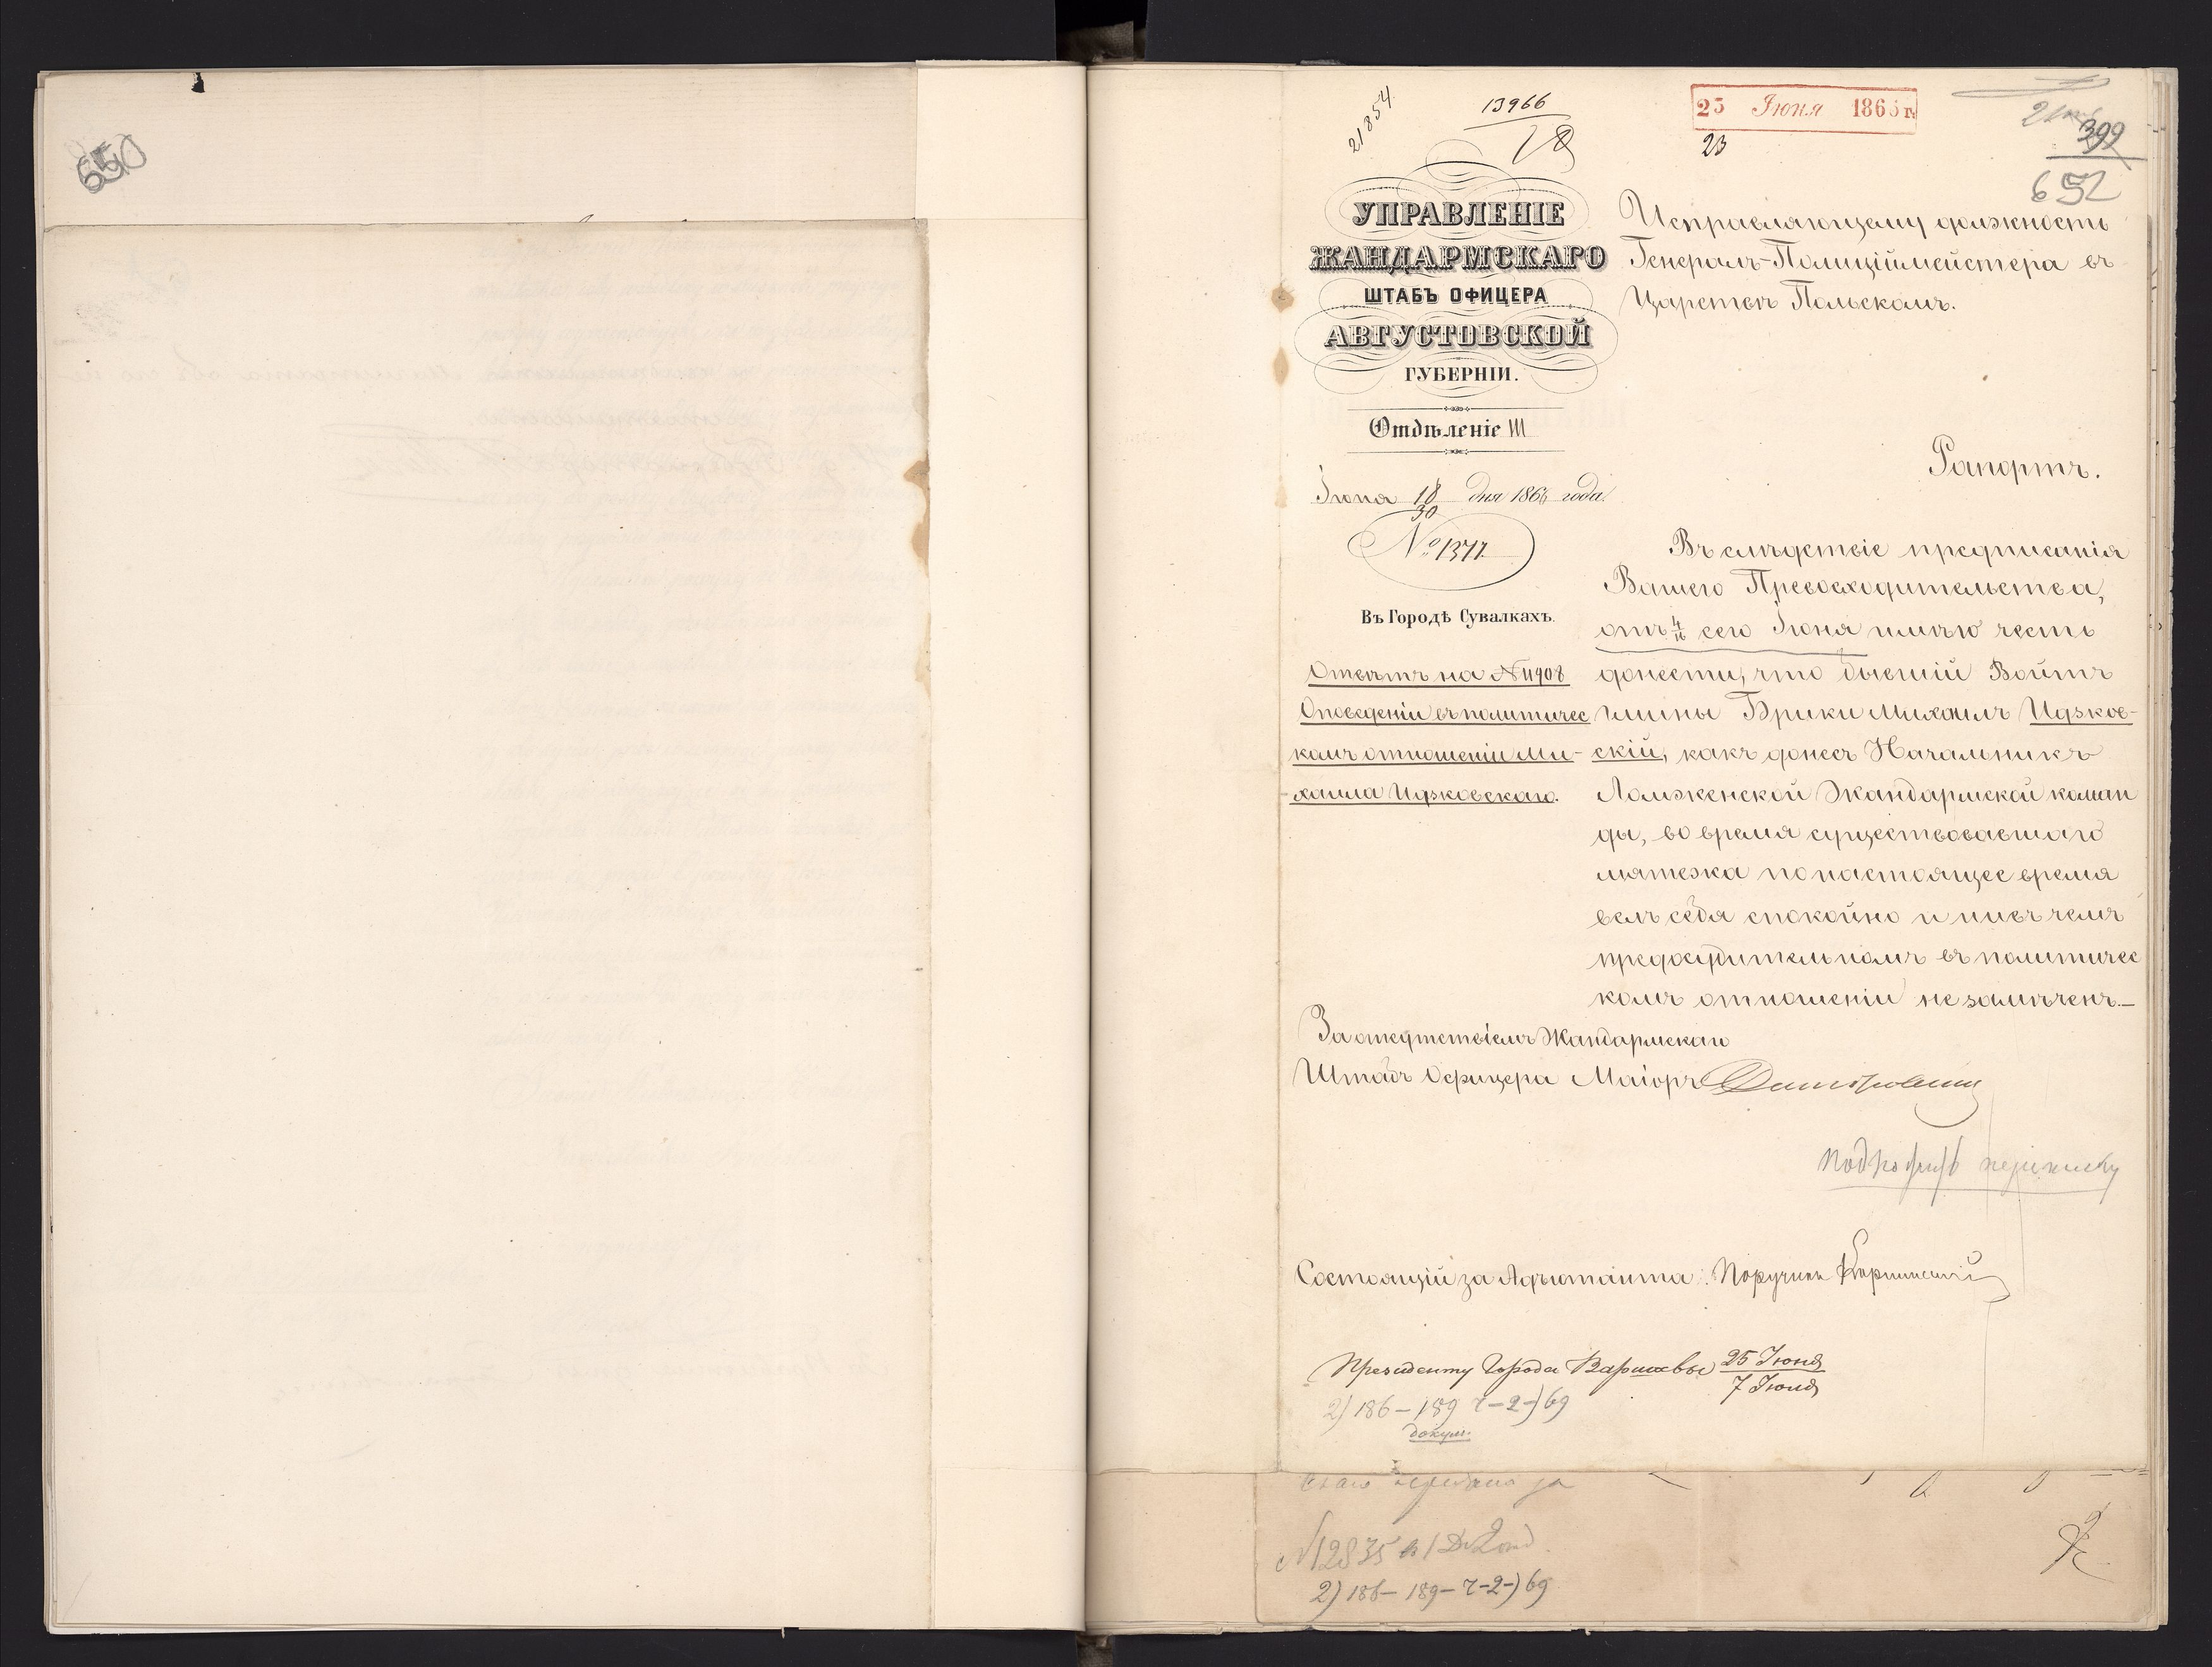 650
21854
13966
25 Іюня 186 г.
23
399
652
УПРАВЛЕНІЕ
ЖАНДАРМСКАГО
ШТАБЪ ОФИЦЕРА
АВГУСТОВСКОЙ
ГУБЕРНІИ.
Отдѣленіе III
Іюня 18/30 дня 186 года.
№ 1377.
Въ Городѣ Сувалкахъ.
Отвѣтъ на №
О поведеніи въ политичес
комъ отношеніи Ми-
хаила Идзковскаго.
Исправляющему должность
Генералъ-Полиціймейстера въ
Царствѣ Польскомъ.
Рапортъ.
Въ слѣдствіе предписанія
Вашего Превосходительства,
отъ 4/16 сего Іюня имѣю честь
донести, что бывшій Войтъ
гмины Брики Михаилъ Идзков-
скій, какъ донесъ Начальникъ
Ломженской Жандармской коман
ды, во время существовавшаго
мятежа по настоящее время
велъ себя спокойно и ни въ чемъ
предосудительномъ въ политичес
комъ отношеніи не замѣченъ.—
За отсутствіемъ Жандармскаго
Штабъ Офицера Маіоръ
Состоящій за Адъютанта: Поручикъ
Президенту Города Варшавы 25 Іюня
7 Іюля
2) 186 – 189 r – 2 –) 69
докум.
№ 12835
2) 186 – 189 – r – 2 –) 69